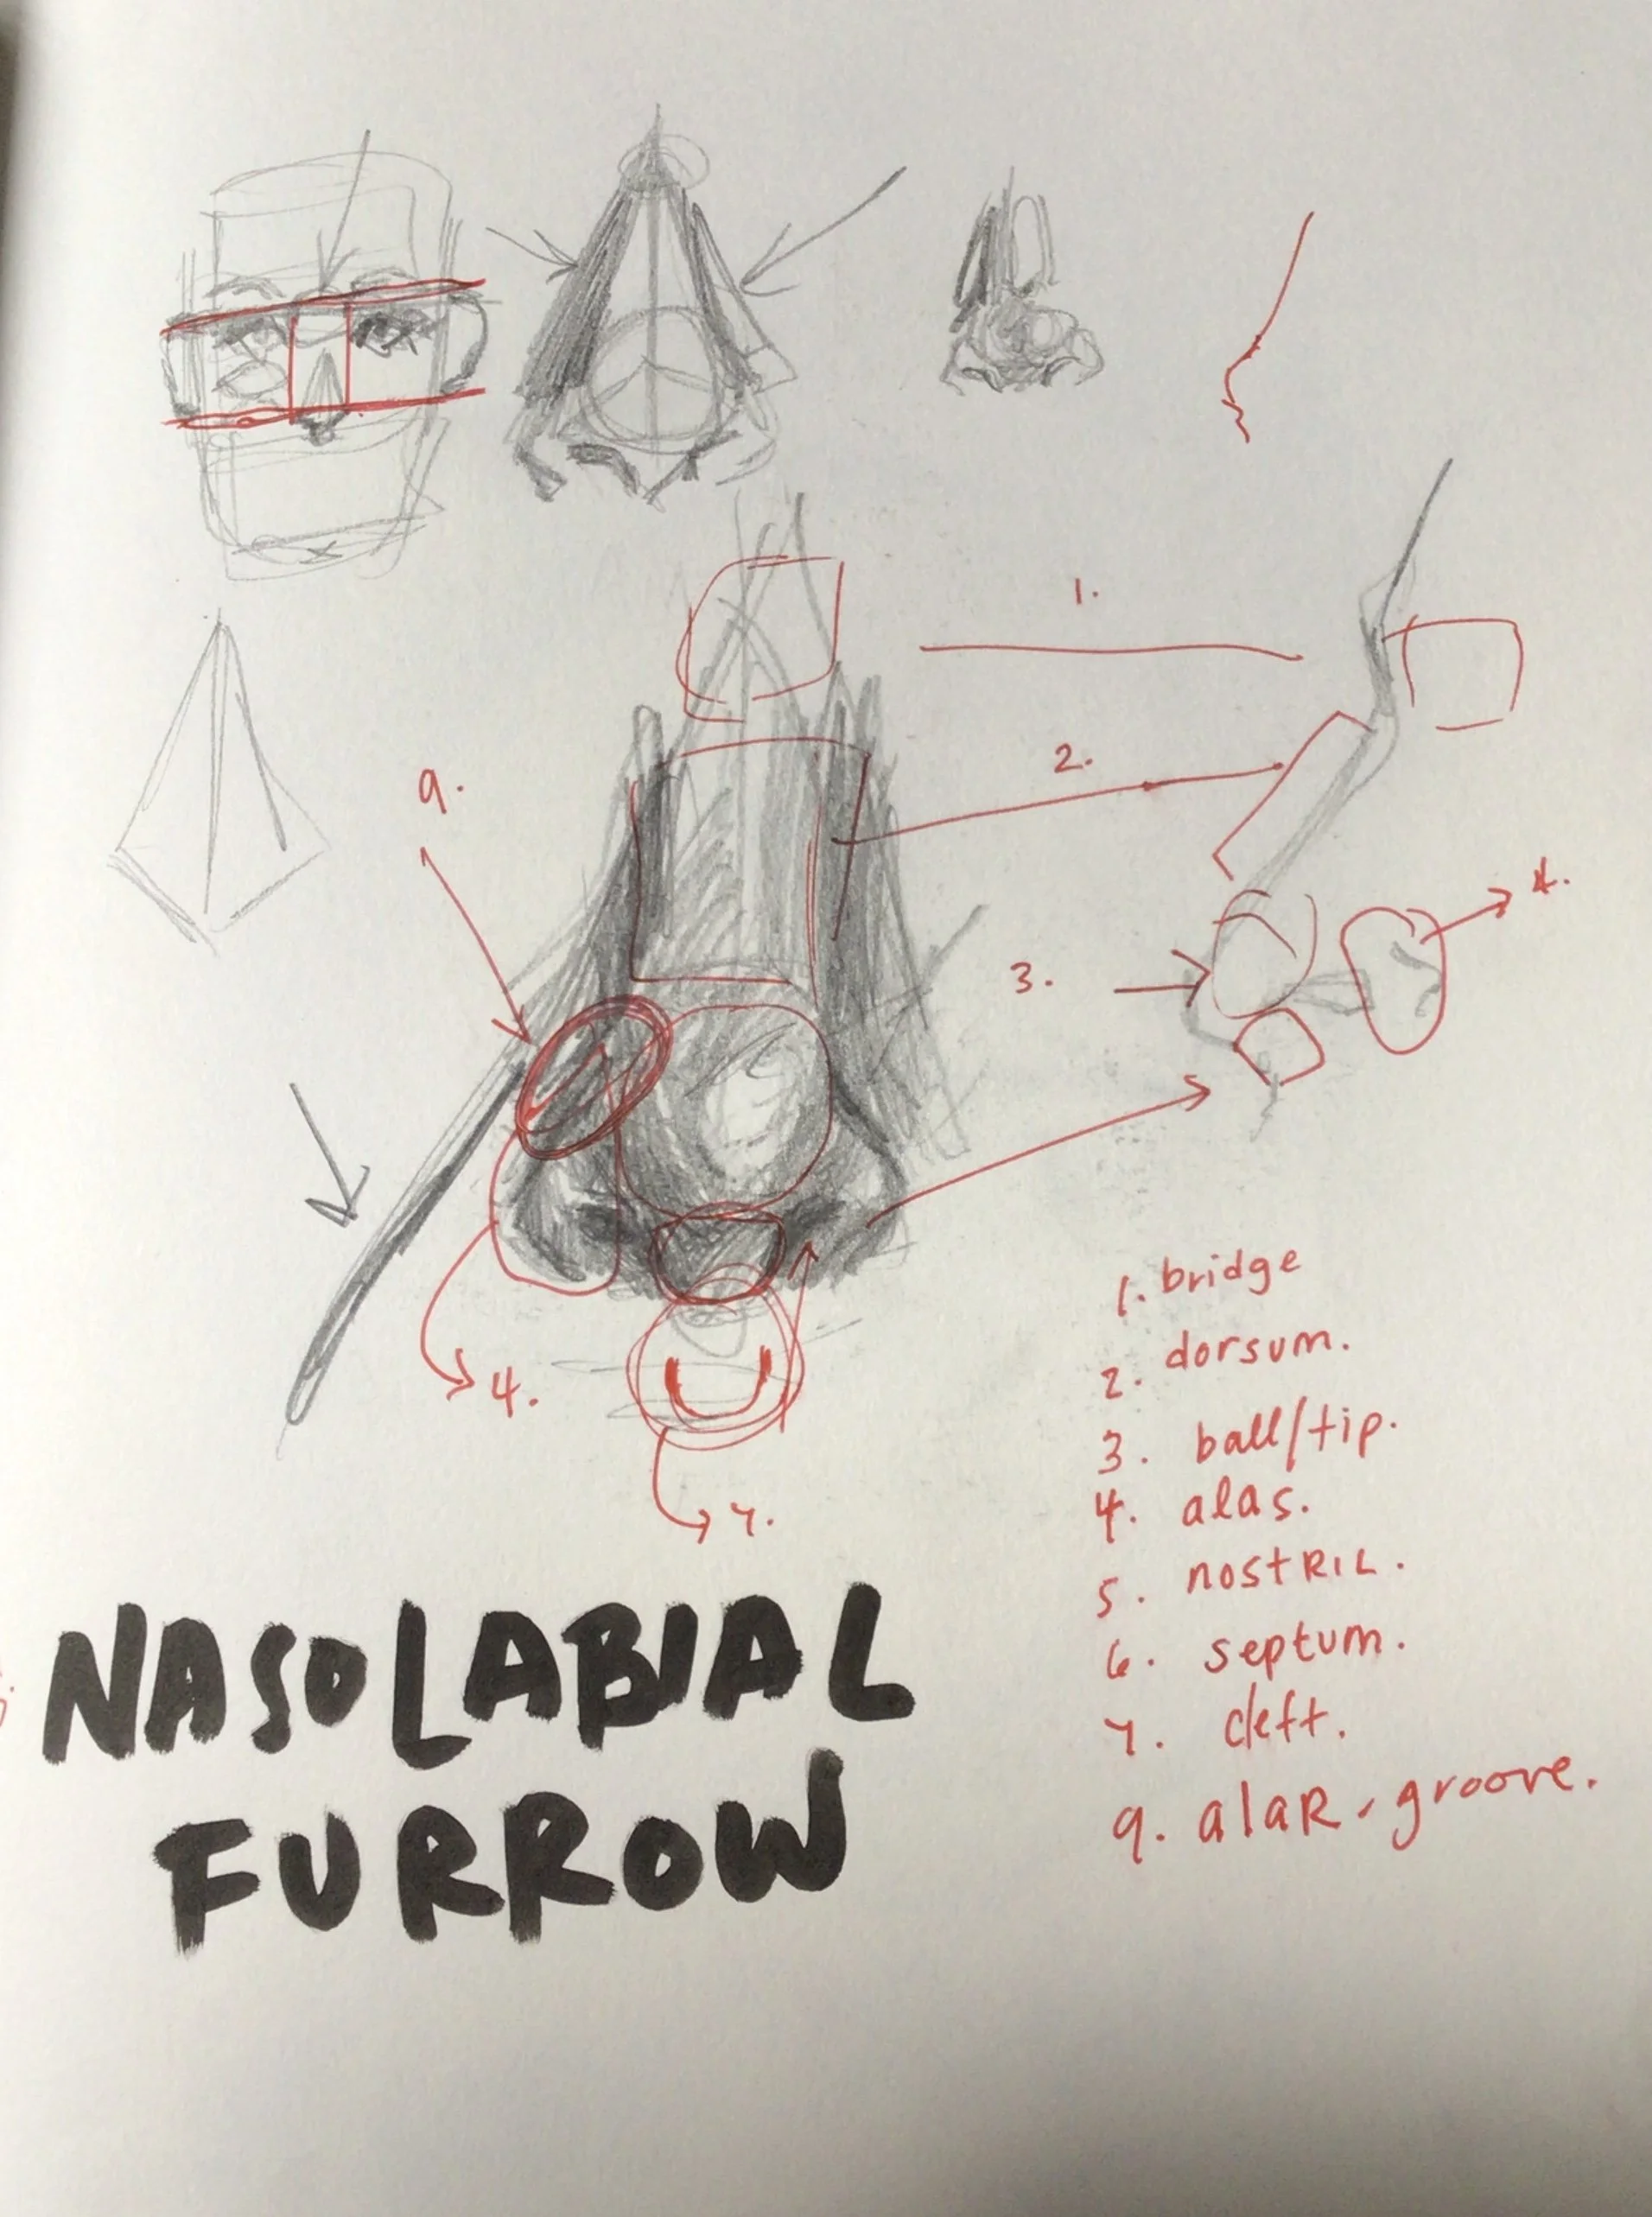 1.
2.
9.
4.
3.
4.
7.
1. bridge
2. dorsum.
3. ball/tip.
4. alas.
5. nostRIL.
6. septum.
7. cleft.
9. alaR - groove.
NASOLABIAL
FURROW